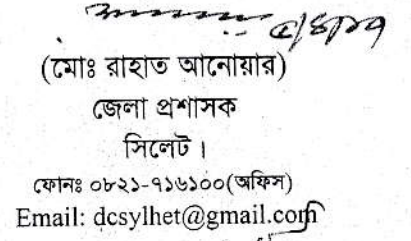 (মোঃ রাহাত আনোয়ার)
জেলা প্রশাসক
সিলেট।
ফোনঃ ০৮২১-৭১৬১০০(অফিস)
Email: dcsylhet@gmail.com